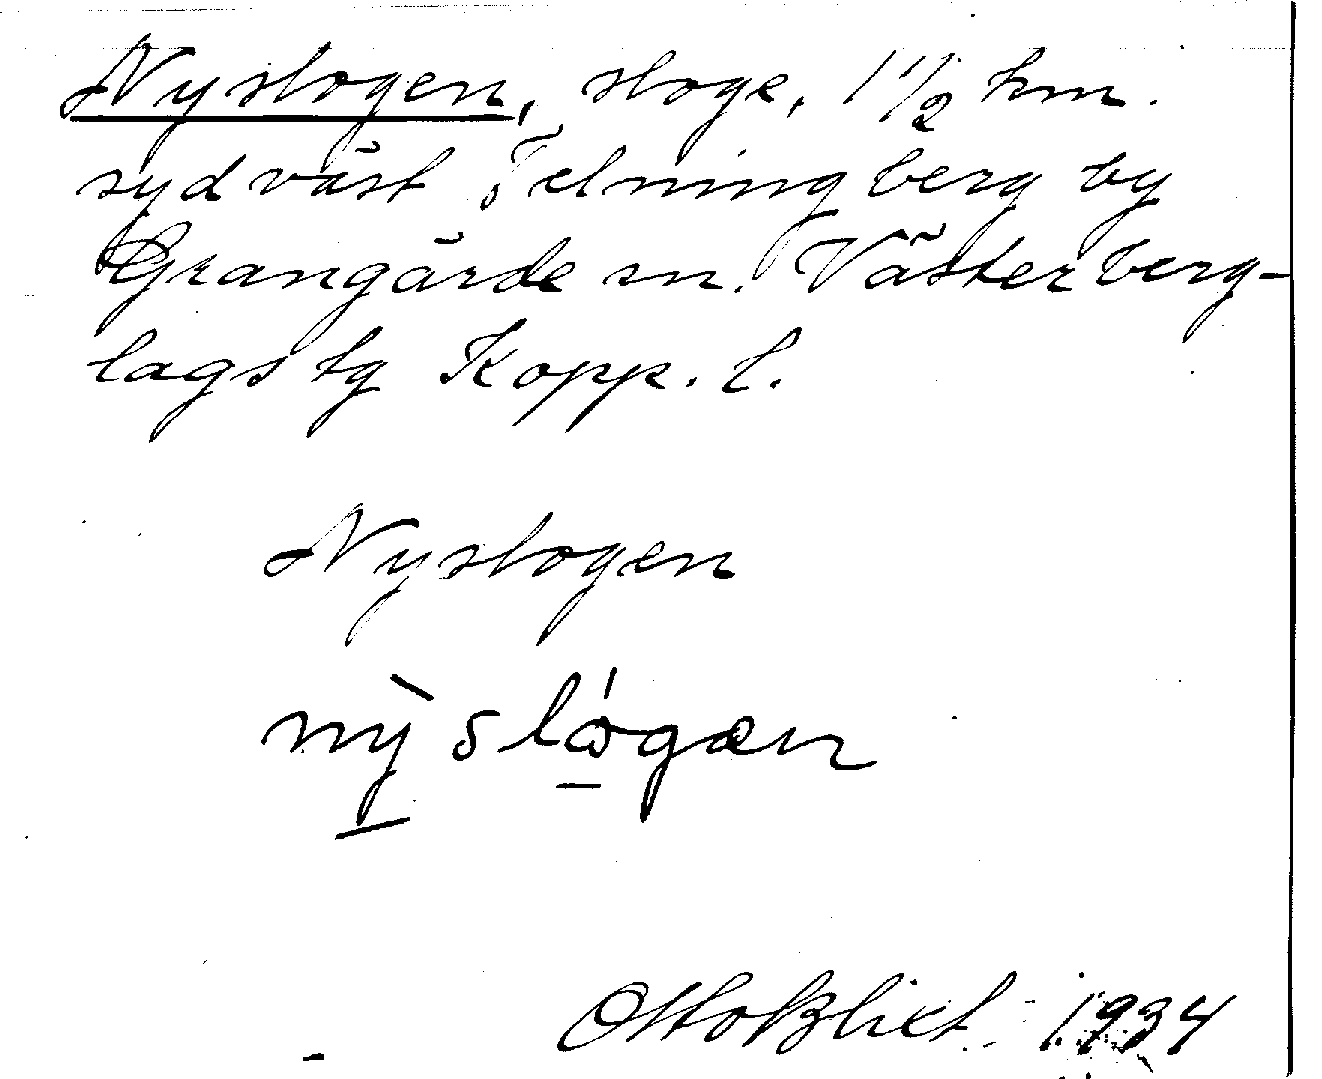 Nyslogen, sloge, 1 1/2 km.
sydväst Telningberg by
Grangärde sn. Västerberg-
lags tg Kopp. l.
Nyslogen
nỳslógæn
Otto Blixt 1934